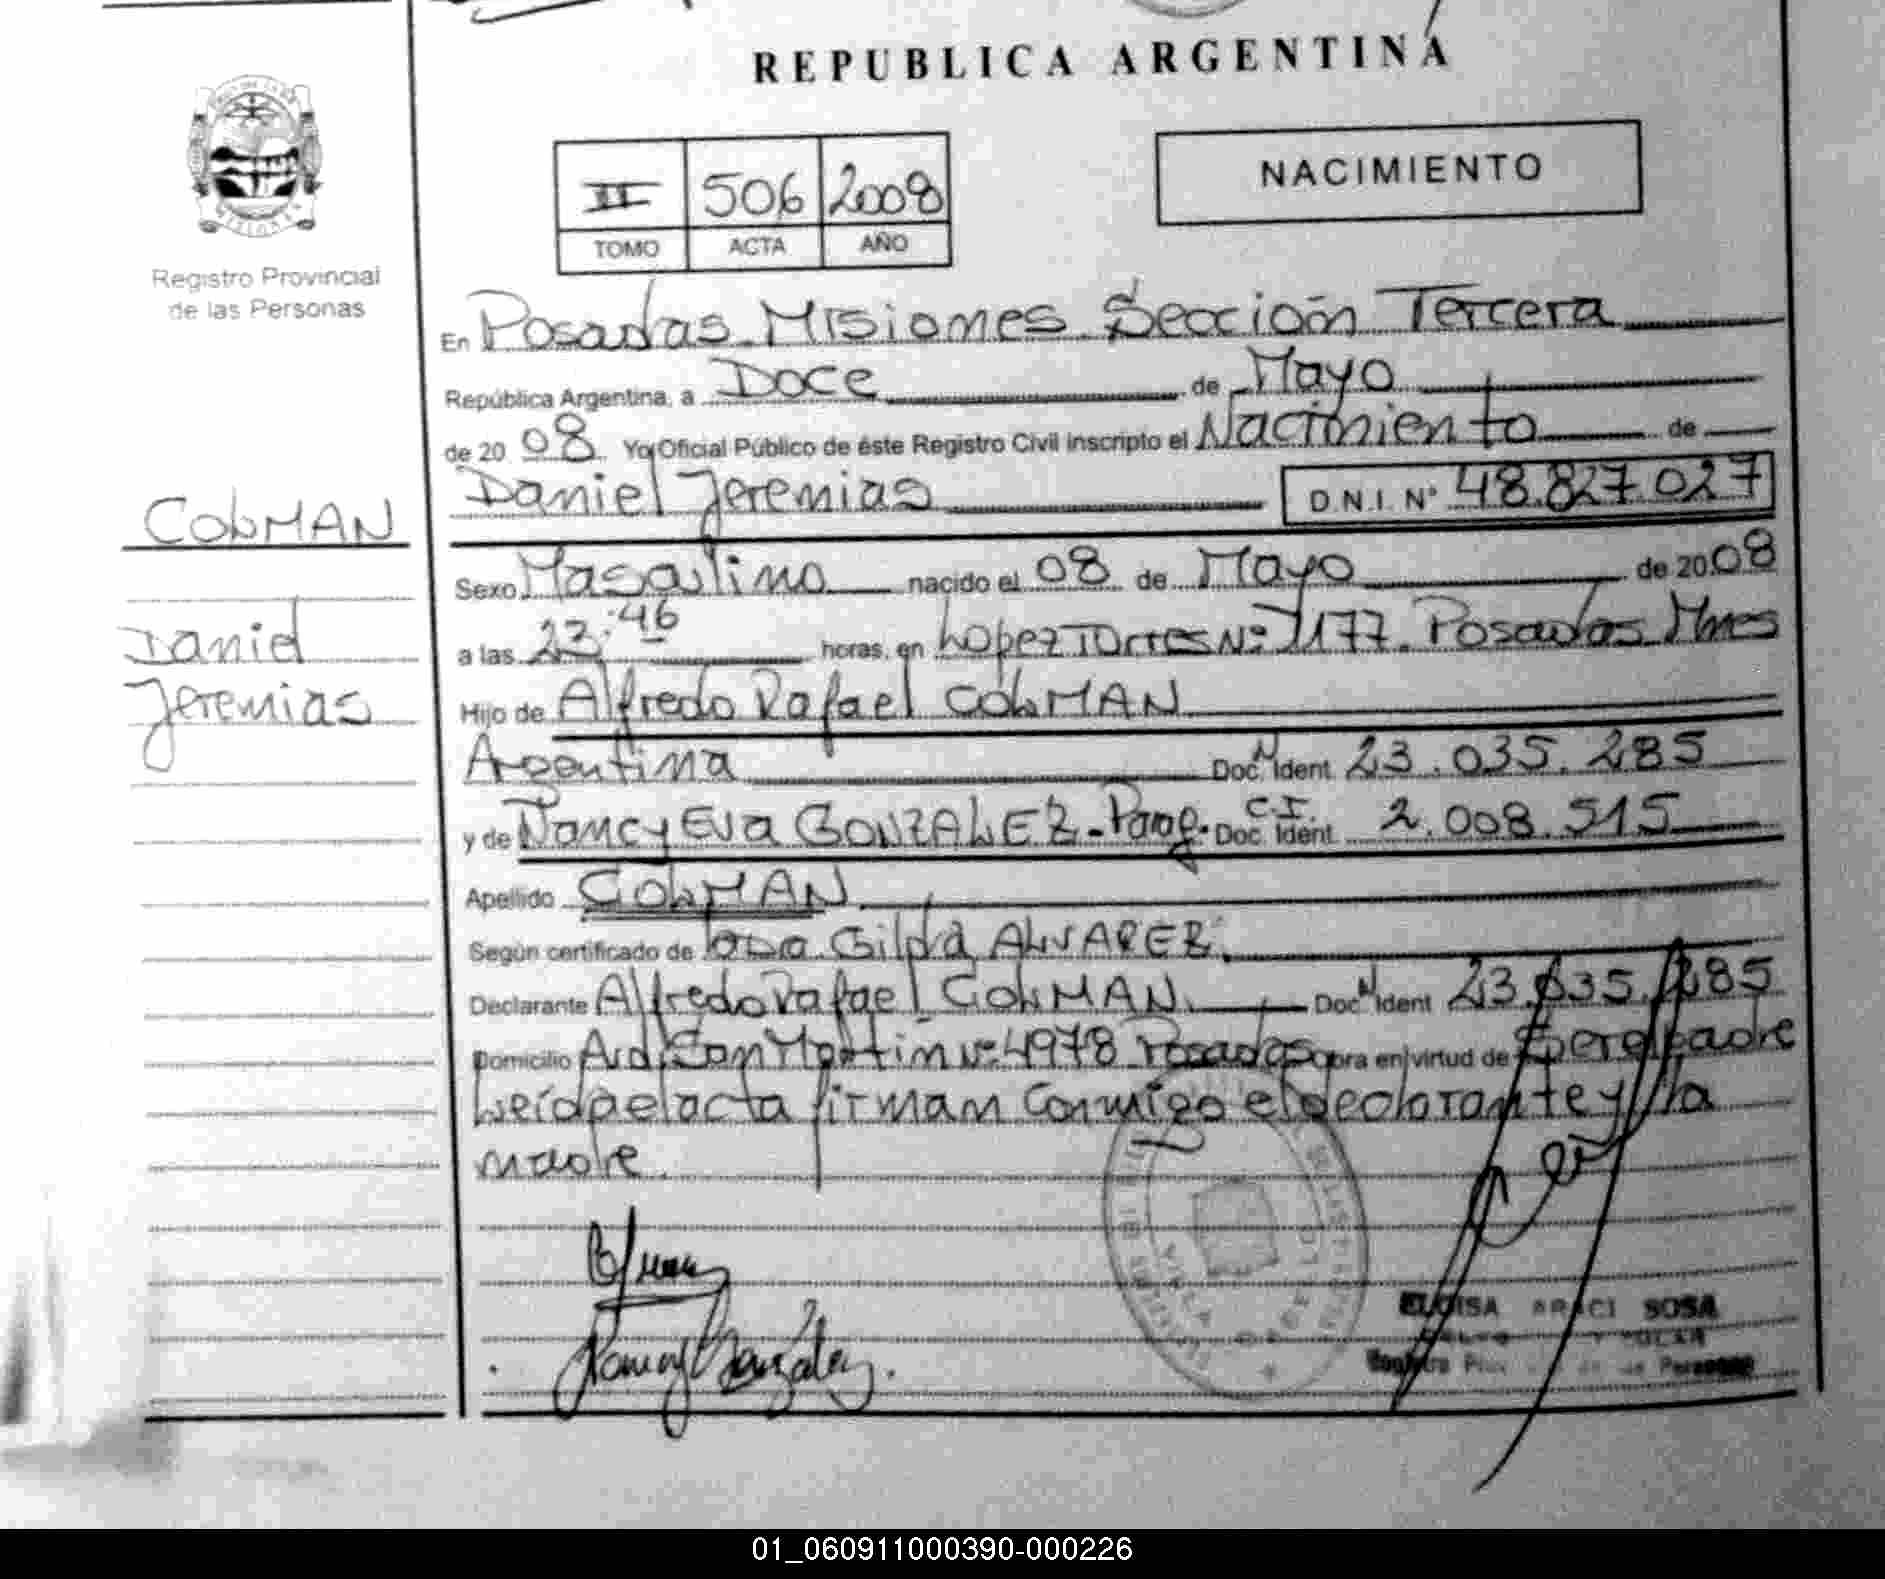 REPUBLICA ARGENTINA
NACIMIENTO
II 506 2008
TOMO ACTA AÑO
Registro Provincial
de las Personas
COLMAN
Daniel
Jeremias
En Posadas Misiones Sección Tercera
República Argentina, a Doce de Mayo
de 20 08 Yo Oficial Público de éste Registro Civil inscripto el Nacimiento de
Daniel Jeremias D.N.I. Nº 48.827.027
Sexo Masculino nacido el 08 de Mayo de 20 08
a las 23:46 horas, en Lopez Torres Nº 1177. Posadas Mnes
Hijo de Alfredo Rafael COLMAN
Argentina Doc. N Ident. 23.035.285
y de Nancy Eva GONZALEZ - Parag. Doc. C.I. Ident. 2.008.515
Apellido COLMAN
Según certificado de Gilda ALVAREZ
Declarante Alfredo Rafael COLMAN Doc. N Ident. 23.035.285
Domicilio Avd. San Martin Nº 4978 Posadas obra en virtud de Ser el padre
Leída el acta firman conmigo el declarante y la
madre.
Nancy González
ELOISA ARACI SOSA
01_060911000390-000226